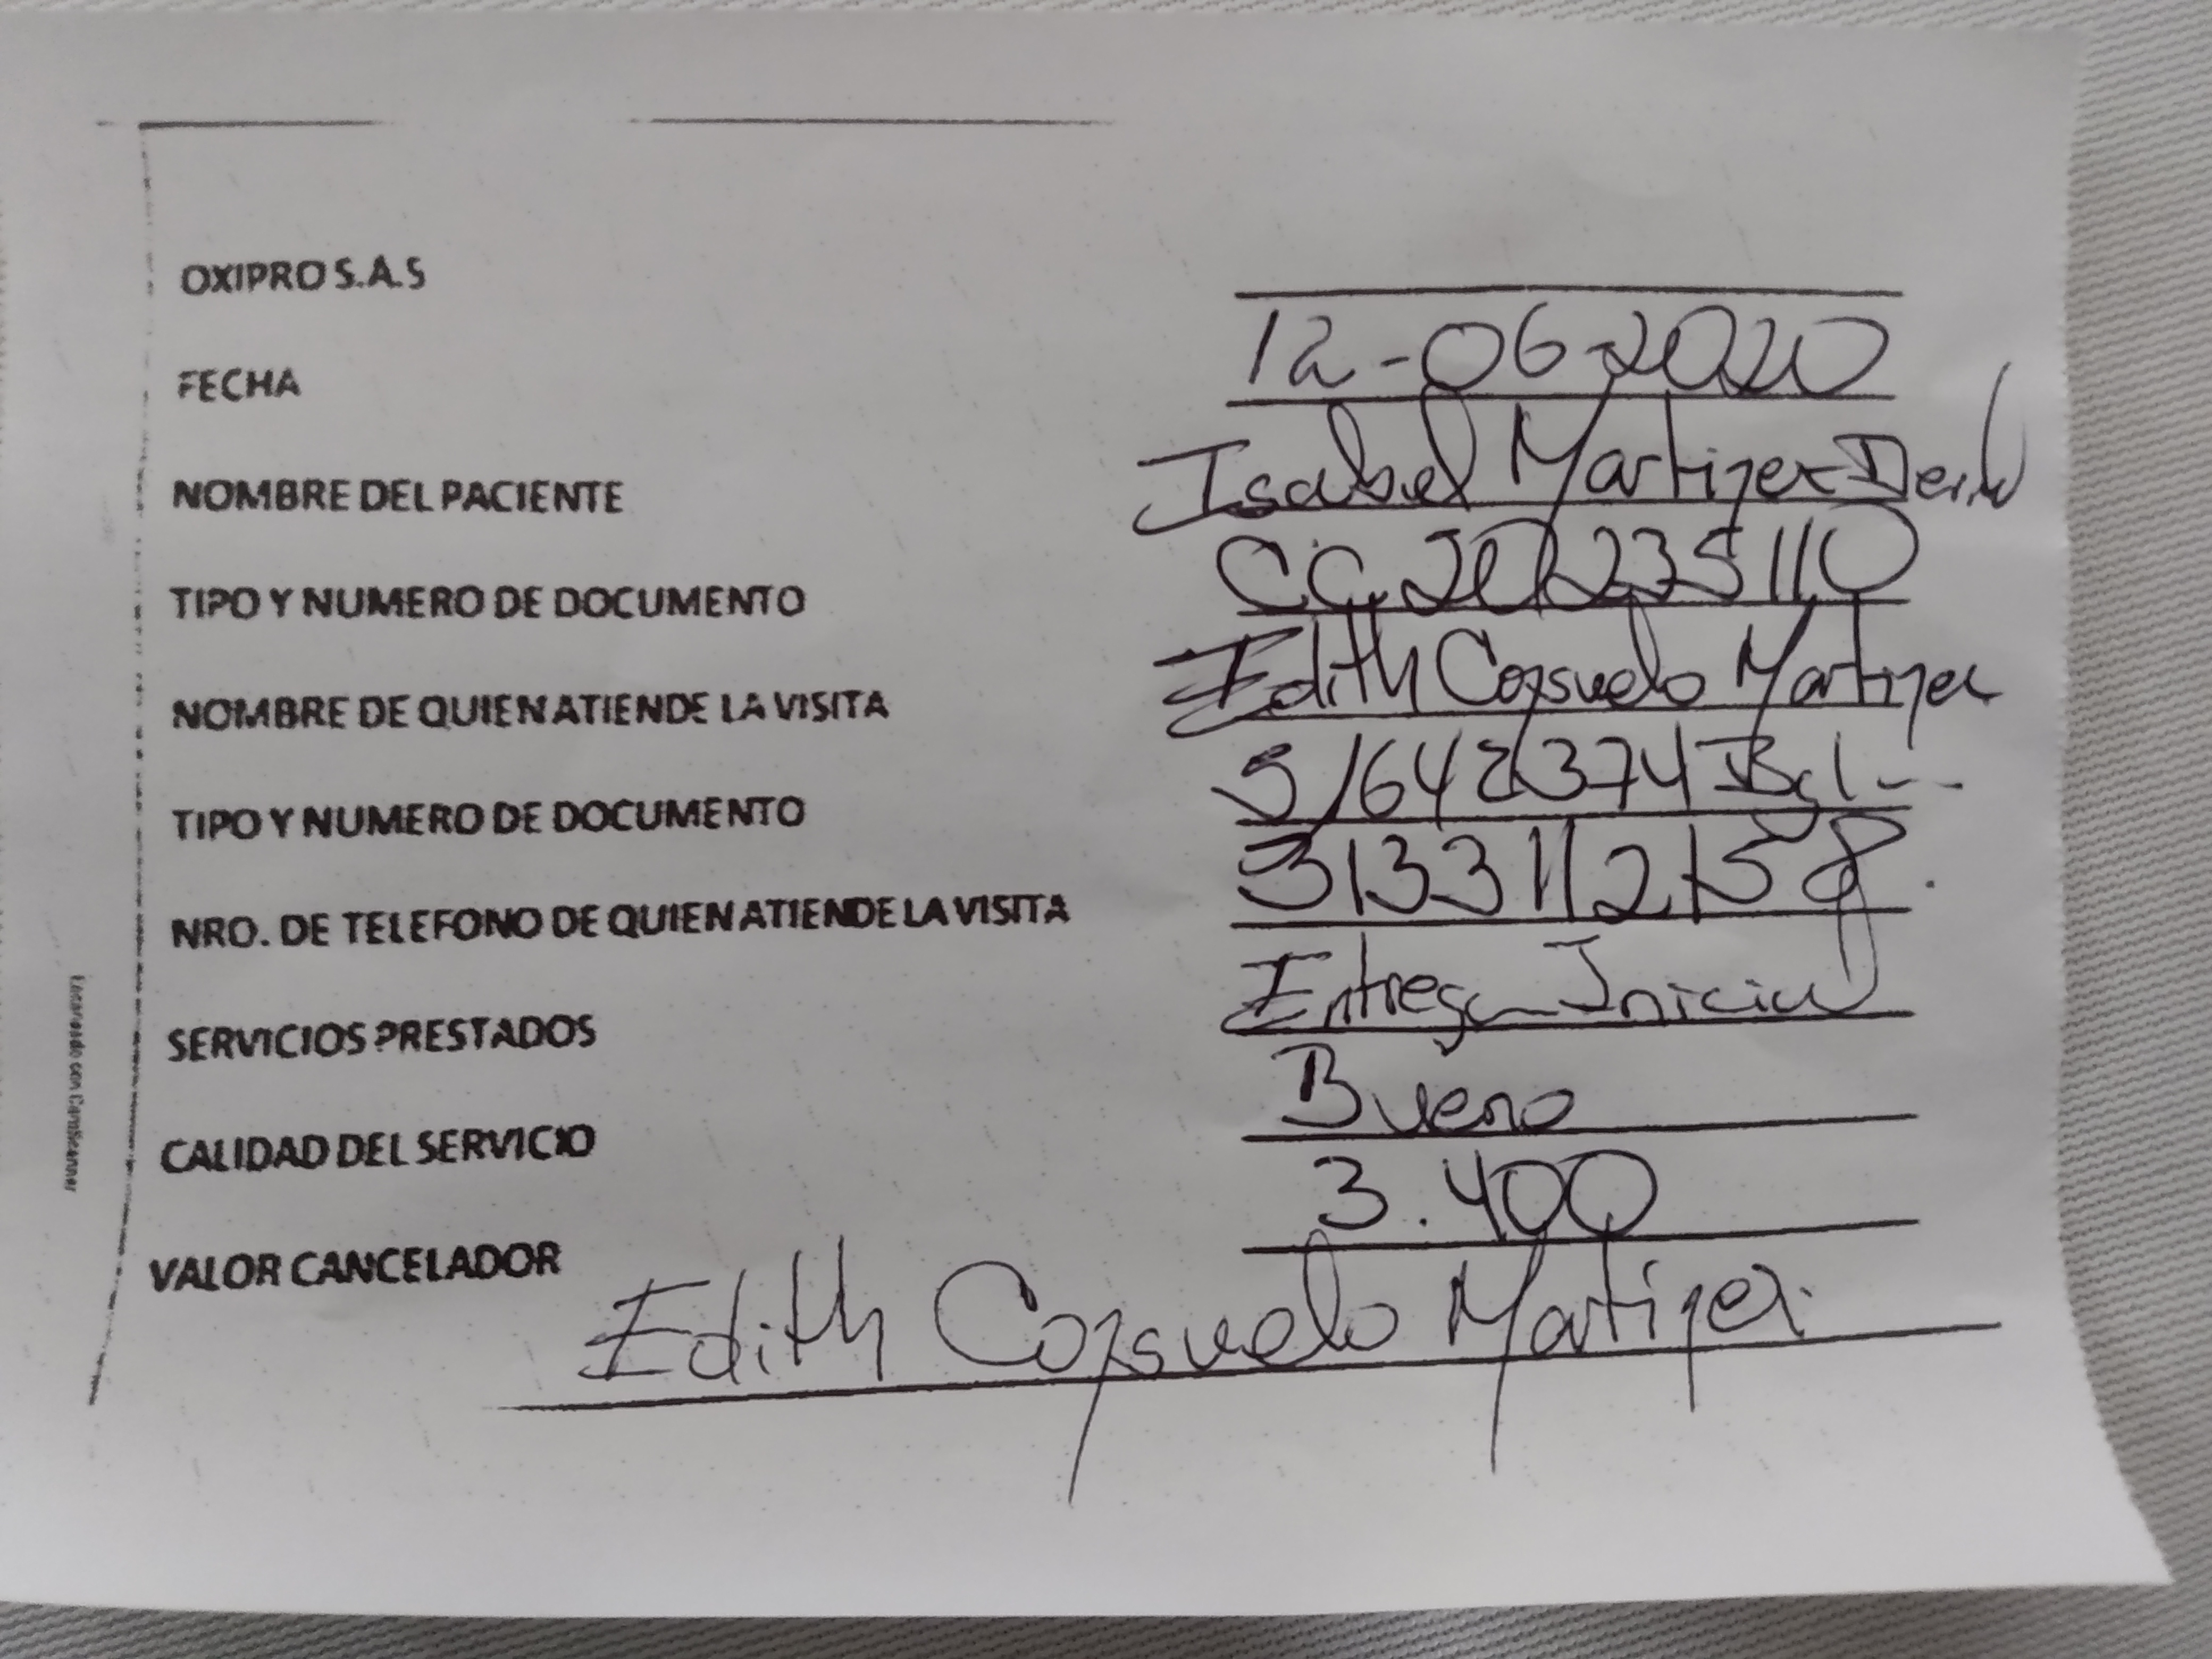 OXIPRO S.A.S
FECHA 12-06-2020
NOMBRE DEL PACIENTE Isabel Martinez De
TIPO Y NUMERO DE DOCUMENTO CC. 20235110
NOMBRE DE QUIEN ATIENDE LA VISITA Edith Consuelo Martinez
TIPO Y NUMERO DE DOCUMENTO 51642374
NRO. DE TELEFONO DE QUIEN ATIENDE LA VISITA 3133112158
SERVICIOS PRESTADOS Entrega Inicial
CALIDAD DEL SERVICIO Bueno
VALOR CANCELADOR 3.400
Edith Consuelo Martinez
Escaneado con CamScanner